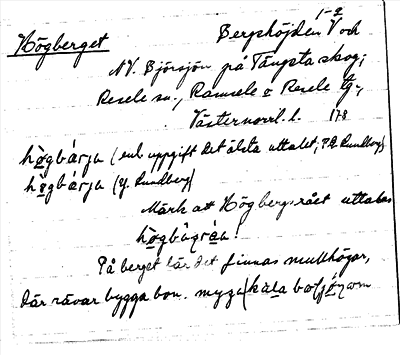 1-2
Högberget Bergshöjden V och
NV. Björsjön på Tängsta skog;
Resele sn., Ramsele o Resele tg.,
Västernorrl. l. 178
högbärja (enl. uppgift det älsta uttalet; P.E. Rundberg)
högbärja (Y. Rundberg)
Märk at Högbergsrået uttalas
högbägråa!
På berget lär det finnas mullhögar,
där rävar bygga bon. myga